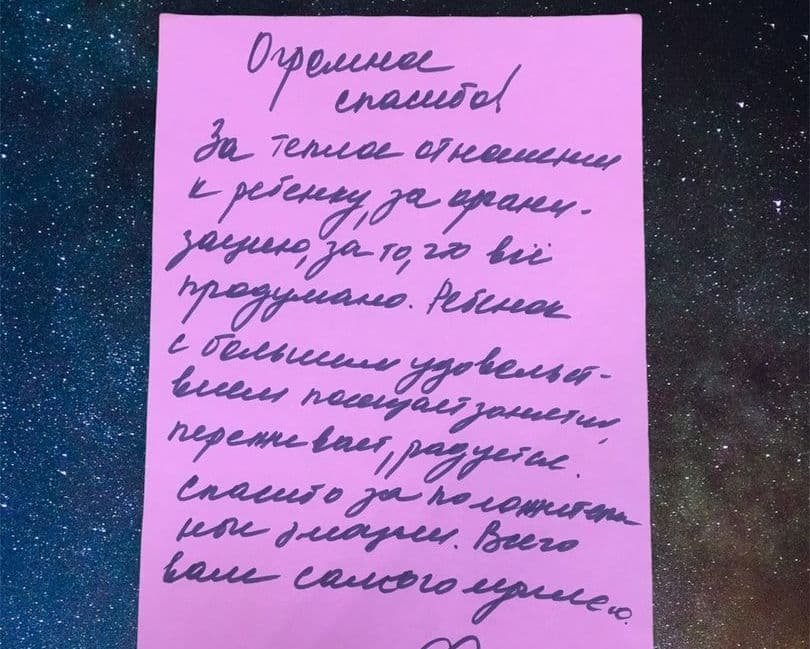 Огромное
спасибо!
За теплое отношение
к ребенку, за органи-
зацию, за то, что всё
продумано. Ребенок
с большим удовольст-
вием посещает занятия,
переживает, радуется.
Спасибо за положитель
ные эмоции. Всего
вам самого